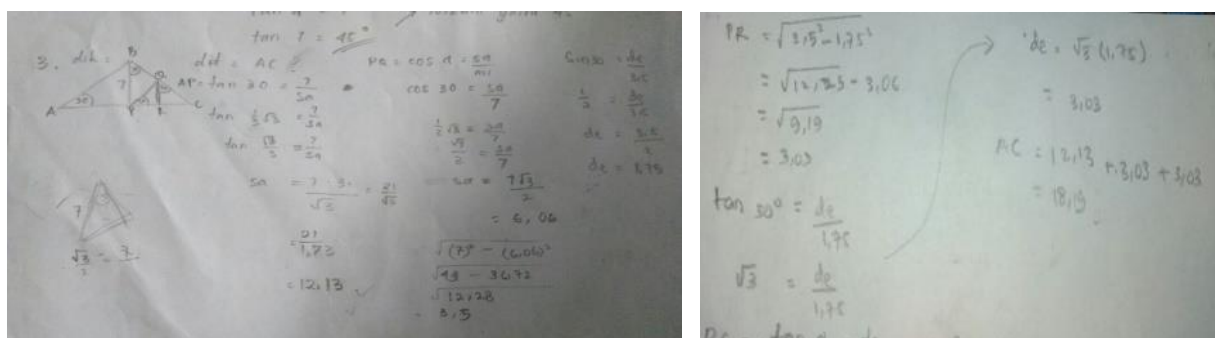 tan 1 = 45°
3. dik =
dit = AC ?
A
B
7
30°
P
Q
R
C
AP = tan 30 = 7/sa
tan 1/3 √3 = 7/sa
tan √3/3 = 7/sa
sa = 7 . 3 / √3 = 21/√3
= 21/1,73
= 12,13
7
√3/2 = 7
PQ = cos α = sa/mi
cos 30 = sa/7
1/2 √3 = sa/7
√3/2 = sa/7
sa = 7√3/2
= 6,06
√(7)² - (6,06)²
√49 - 36,72
√12,28
= 3,5
Sin 30 = de/3,5
1/2 = de/3,5
de = 3,5/2
de = 1,75
PR = √3,5² - 1,75²
= √12,25 - 3,06
= √9,19
= 3,03
tan = de/1,75
√3 = de/1,75
de = √3 (1,75)
= 3,03
AC = 12,13 + 3,03 + 3,03
= 18,19